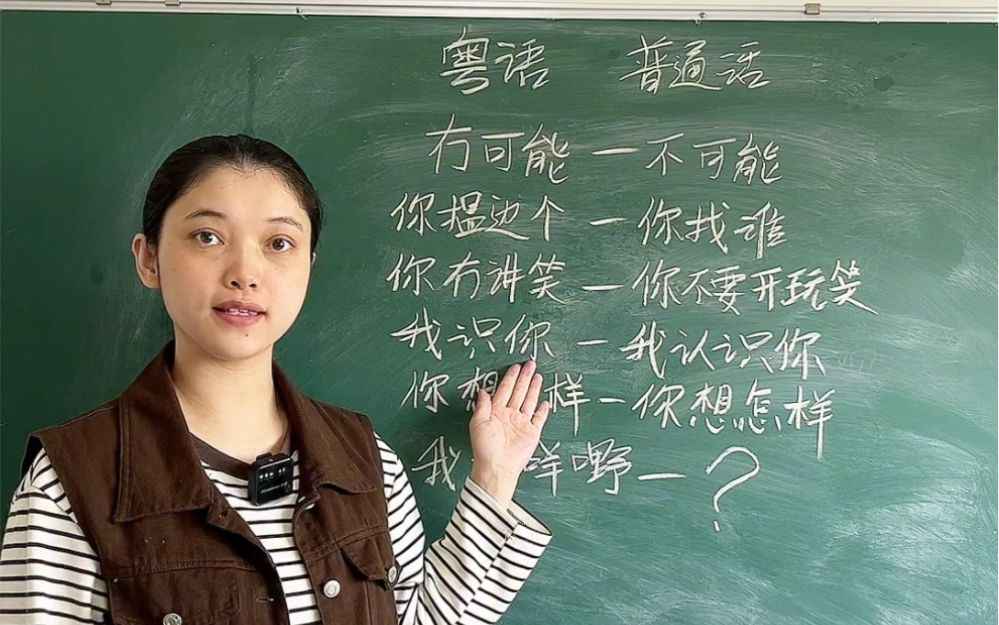 粤语 普通话
冇可能 — 不可能
你揾边个 — 你找谁
你冇讲笑 — 你不要开玩笑
我识你 — 我认识你
你想 样 — 你想怎样
我 嘢 — ?